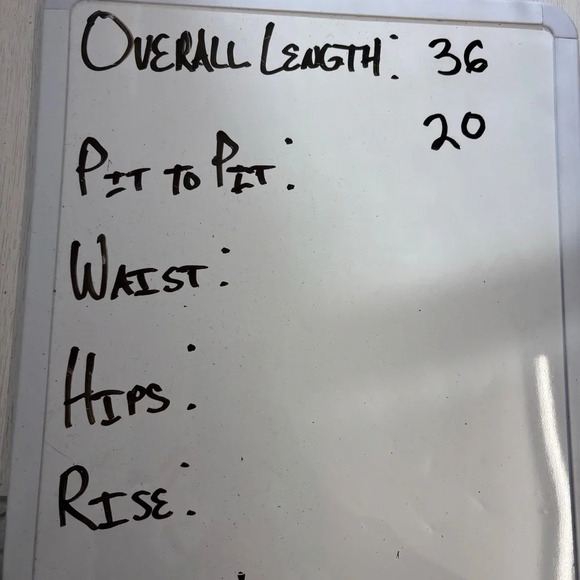 OVERALL LENGTH: 36
20
PIT TO PIT:
WAIST:
HIPS:
RISE: